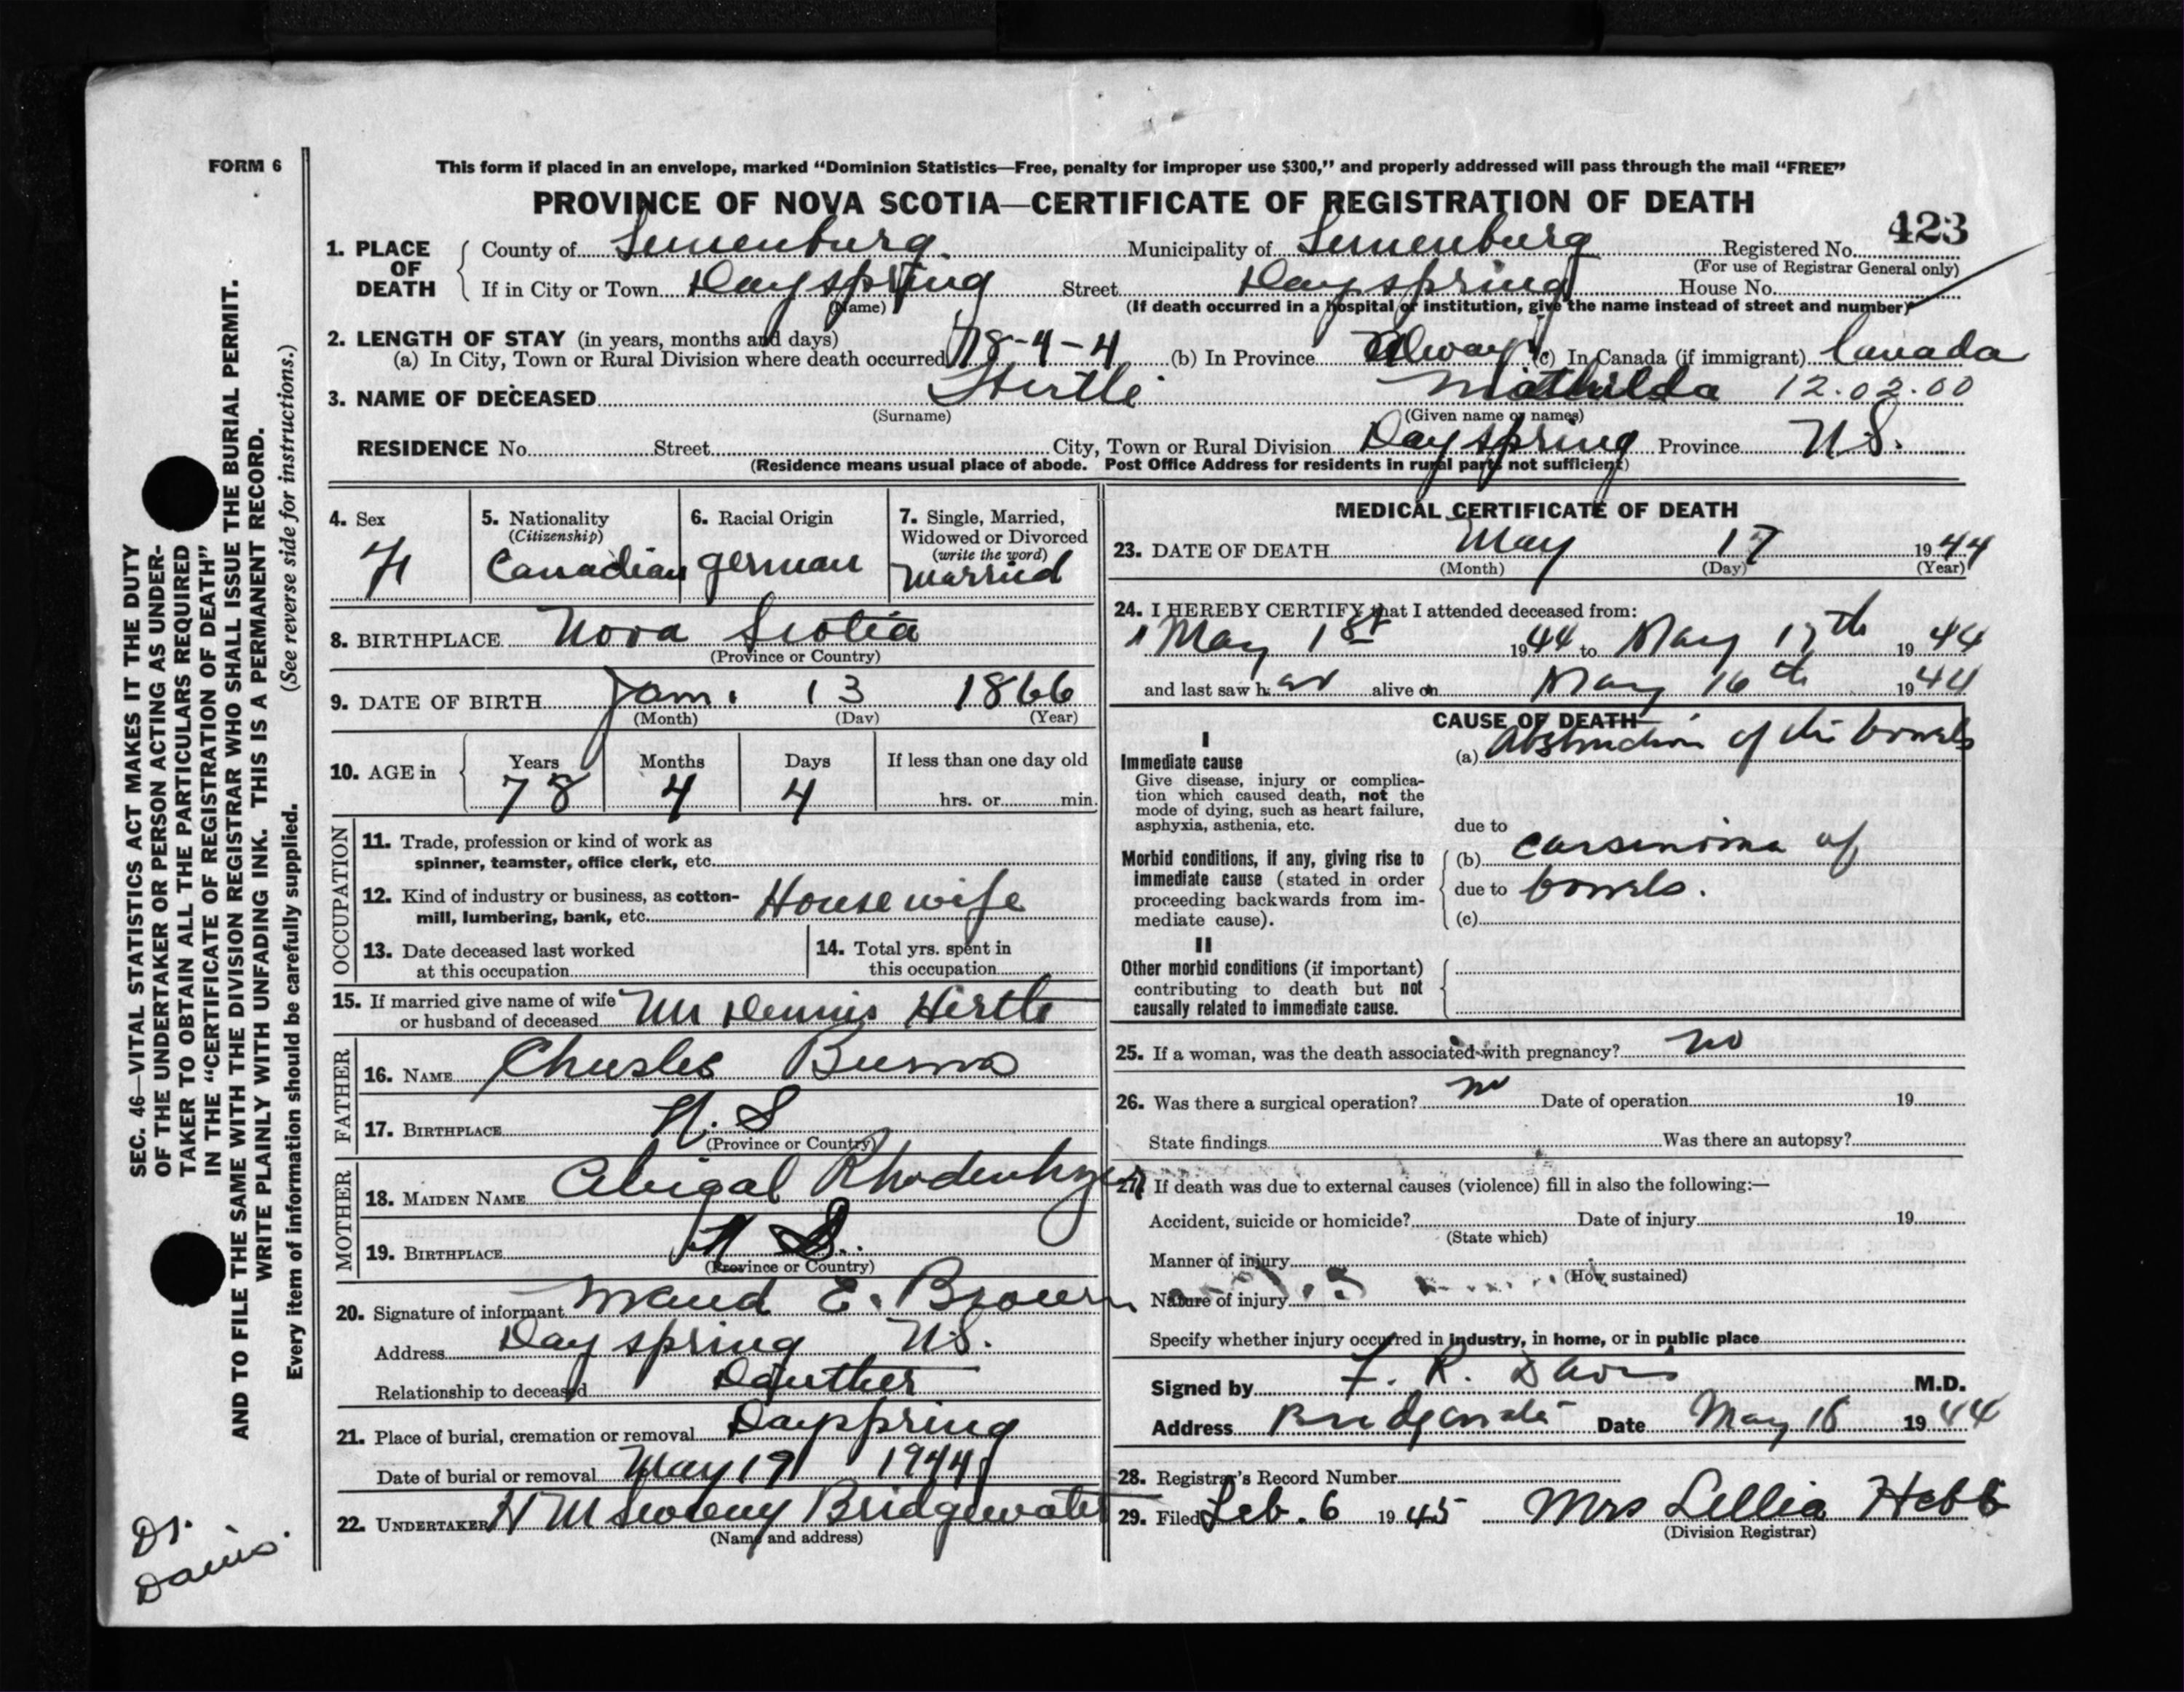 FORM 6
This form if placed in an envelope, marked “Dominion Statistics—Free, penalty for improper use $300,” and properly addressed will pass through the mail “FREE”
PROVINCE OF NOVA SCOTIA—CERTIFICATE OF REGISTRATION OF DEATH
423
1. PLACE OF DEATH County of Lunenburg Municipality of Lunenburg Registered No.
(For use of Registrar General only)
If in City or Town Dayspring Street Dayspring House No.
(Name) (If death occurred in a hospital or institution, give the name instead of street and number)
2. LENGTH OF STAY (in years, months and days)
(a) In City, Town or Rural Division where death occurred 78-4-4 (b) In Province Always (c) In Canada (if immigrant) Canada
3. NAME OF DECEASED Hirtle Mathilda 12.02.00
(Surname) (Given name or names)
RESIDENCE No. Street City, Town or Rural Division Dayspring Province N.S.
(Residence means usual place of abode. Post Office Address for residents in rural parts not sufficient)
4. Sex F
5. Nationality (Citizenship) Canadian
6. Racial Origin german
7. Single, Married, Widowed or Divorced (write the word) Married
8. BIRTHPLACE Nova Scotia
(Province or Country)
9. DATE OF BIRTH Jan. 13 1866
(Month) (Day) (Year)
10. AGE in Years 78 Months 4 Days 4 If less than one day old
hrs. or min.
OCCUPATION
11. Trade, profession or kind of work as
spinner, teamster, office clerk, etc.
12. Kind of industry or business, as cotton-
mill, lumbering, bank, etc. House wife
13. Date deceased last worked
at this occupation
14. Total yrs. spent in
this occupation
15. If married give name of wife
or husband of deceased Mr Dennis Hirtle
FATHER
16. NAME Charles Burns
17. BIRTHPLACE N. S
(Province or Country)
MOTHER
18. MAIDEN NAME Abigal Rhodenhyzer
19. BIRTHPLACE N S.
(Province or Country)
20. Signature of informant Maud E. Brown
Address Dayspring N.S.
Relationship to deceased Dauther
21. Place of burial, cremation or removal Dayspring
Date of burial or removal May 19 1944
22. UNDERTAKER H M Sweeny Bridgewater
(Name and address)
MEDICAL CERTIFICATE OF DEATH
23. DATE OF DEATH May 17 1944
(Month) (Day) (Year)
24. I HEREBY CERTIFY that I attended deceased from:
May 1st 1944 to May 17th 1944
and last saw her alive on May 16th 1944
CAUSE OF DEATH
I
Immediate cause (a) Abstruction of the bowels
Give disease, injury or complica-
tion which caused death, not the
mode of dying, such as heart failure,
asphyxia, asthenia, etc.
due to
Morbid conditions, if any, giving rise to
immediate cause (stated in order
proceeding backwards from im-
mediate cause).
(b) carsinoima of
due to bowels.
(c)
II
Other morbid conditions (if important)
contributing to death but not
causally related to immediate cause.
25. If a woman, was the death associated with pregnancy? no
26. Was there a surgical operation? no Date of operation 19
State findings Was there an autopsy?
27. If death was due to external causes (violence) fill in also the following:—
Accident, suicide or homicide? Date of injury 19
(State which)
Manner of injury
(How sustained)
Nature of injury
Specify whether injury occurred in industry, in home, or in public place
Signed by F. R. Davis M.D.
Address Bridgewater Date May 18 1944
28. Registrar's Record Number
29. Filed Feb. 6 1945 Mrs Lellia Hebb
(Division Registrar)
SEC. 46—VITAL STATISTICS ACT MAKES IT THE DUTY
OF THE UNDERTAKER OR PERSON ACTING AS UNDER-
TAKER TO OBTAIN ALL THE PARTICULARS REQUIRED
IN THE “CERTIFICATE OF REGISTRATION OF DEATH”
AND TO FILE THE SAME WITH THE DIVISION REGISTRAR WHO SHALL ISSUE THE BURIAL PERMIT.
WRITE PLAINLY WITH UNFADING INK. THIS IS A PERMANENT RECORD.
Every item of information should be carefully supplied. (See reverse side for instructions.)
Dr.
Davis.